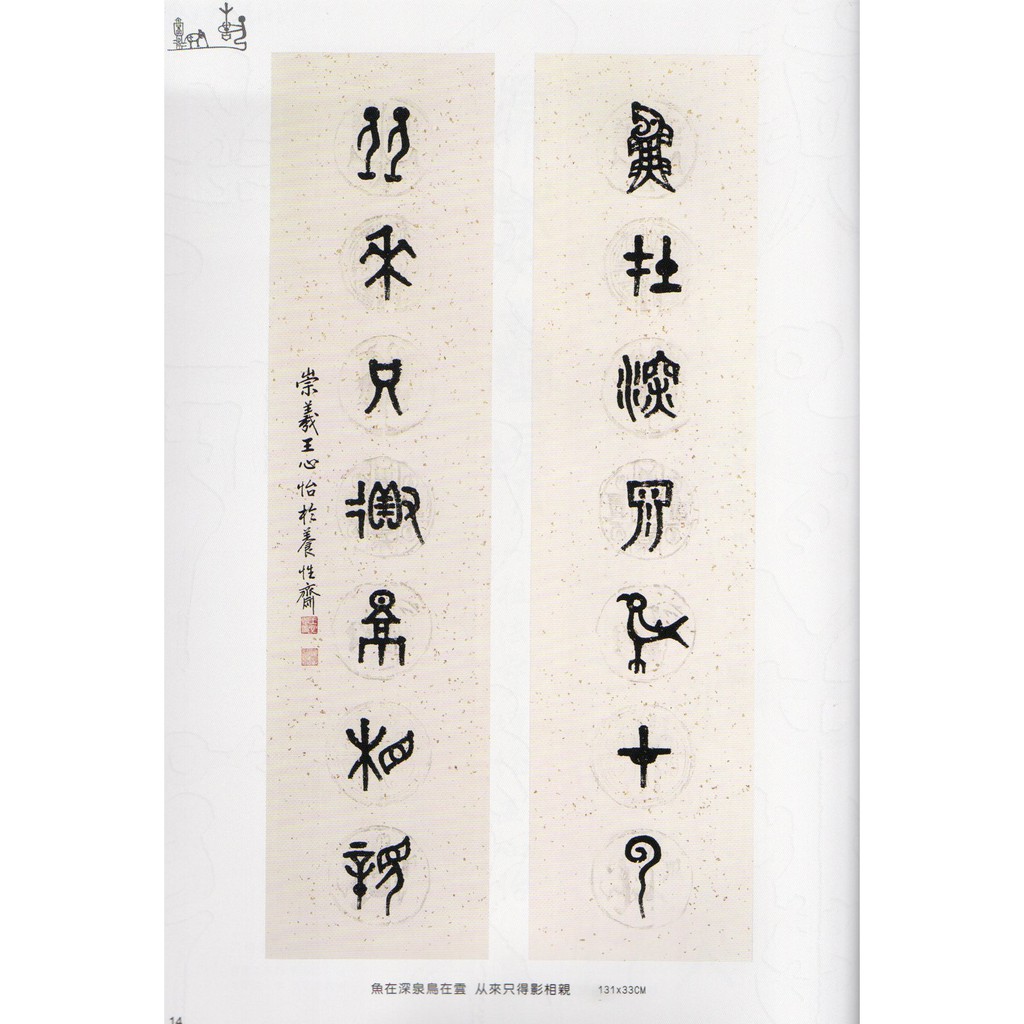 魚在深泉鳥在雲
从來只得影相親
崇義王心怡於養性齋
魚在深泉鳥在雲 从來只得影相親 131x33CM
14